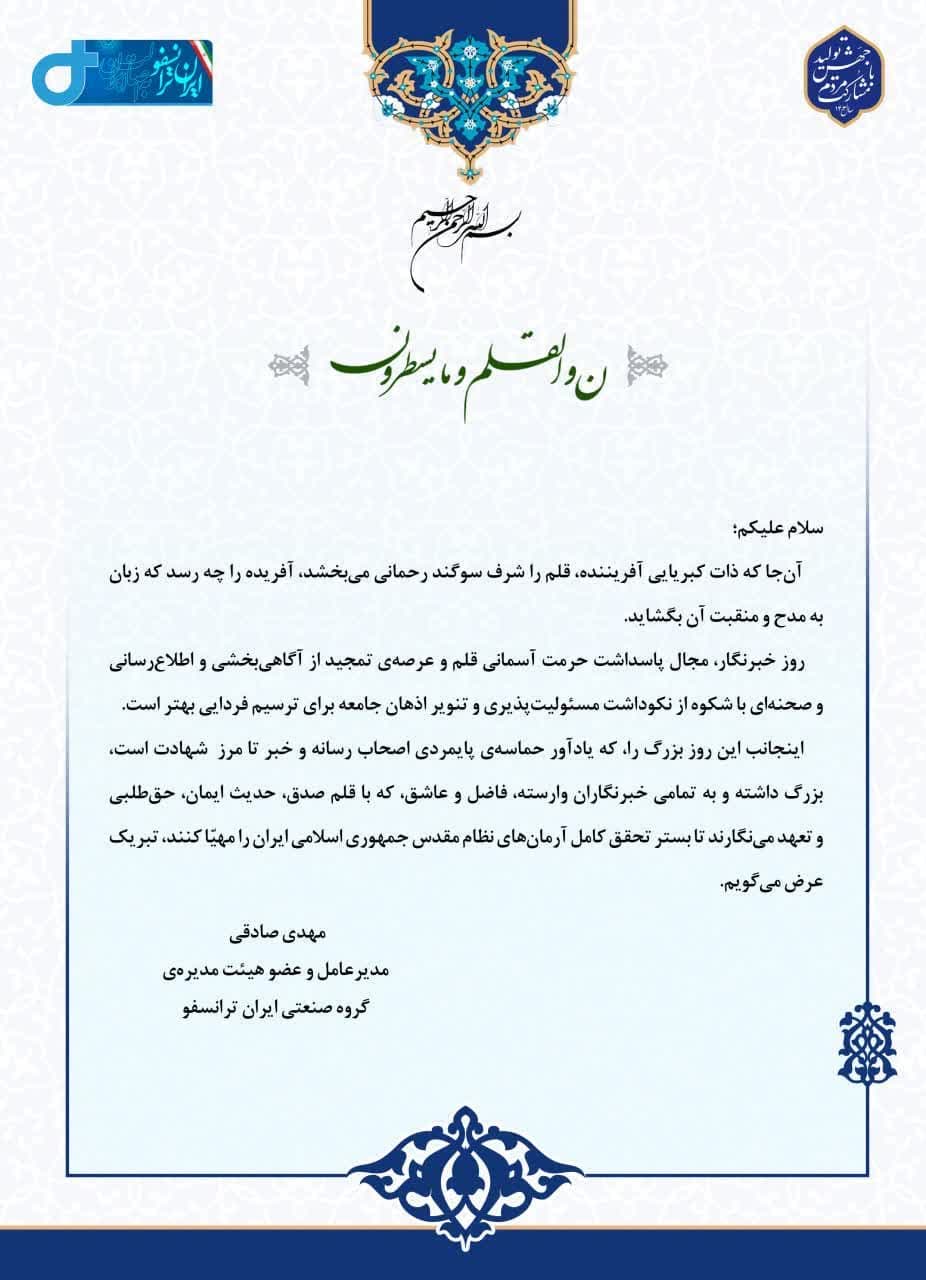 ایران ترانسفو
جهش تولید
با
مشارکت مردم
سال ۱۴۰۳
بسم الله الرحمن الرحیم
ن و القلم و ما یسطرون
سلام علیکم؛
آن‌جا که ذات کبریایی آفریننده، قلم را شرف سوگند رحمانی می‌بخشد، آفریده را چه رسد که زبان
به مدح و منقبت آن بگشاید.
روز خبرنگار، مجال پاسداشت حرمت آسمانی قلم و عرصه‌ی تمجید از آگاهی‌بخشی و اطلاع‌رسانی
و صحنه‌ای با شکوه از نکوداشت مسئولیت‌پذیری و تنویر اذهان جامعه برای ترسیم فردایی بهتر است.
اینجانب این روز بزرگ را، که یادآور حماسه‌ی پایمردی اصحاب رسانه و خبر تا مرز شهادت است،
بزرگ داشته و به تمامی خبرنگاران وارسته، فاضل و عاشق، که با قلم صدق، حدیث ایمان، حق‌طلبی
و تعهد می‌نگارند تا بستر تحقق کامل آرمان‌های نظام مقدس جمهوری اسلامی ایران را مهیّا کنند، تبریک
عرض می‌گویم.
مهدی صادقی
مدیرعامل و عضو هیئت مدیره‌ی
گروه صنعتی ایران ترانسفو